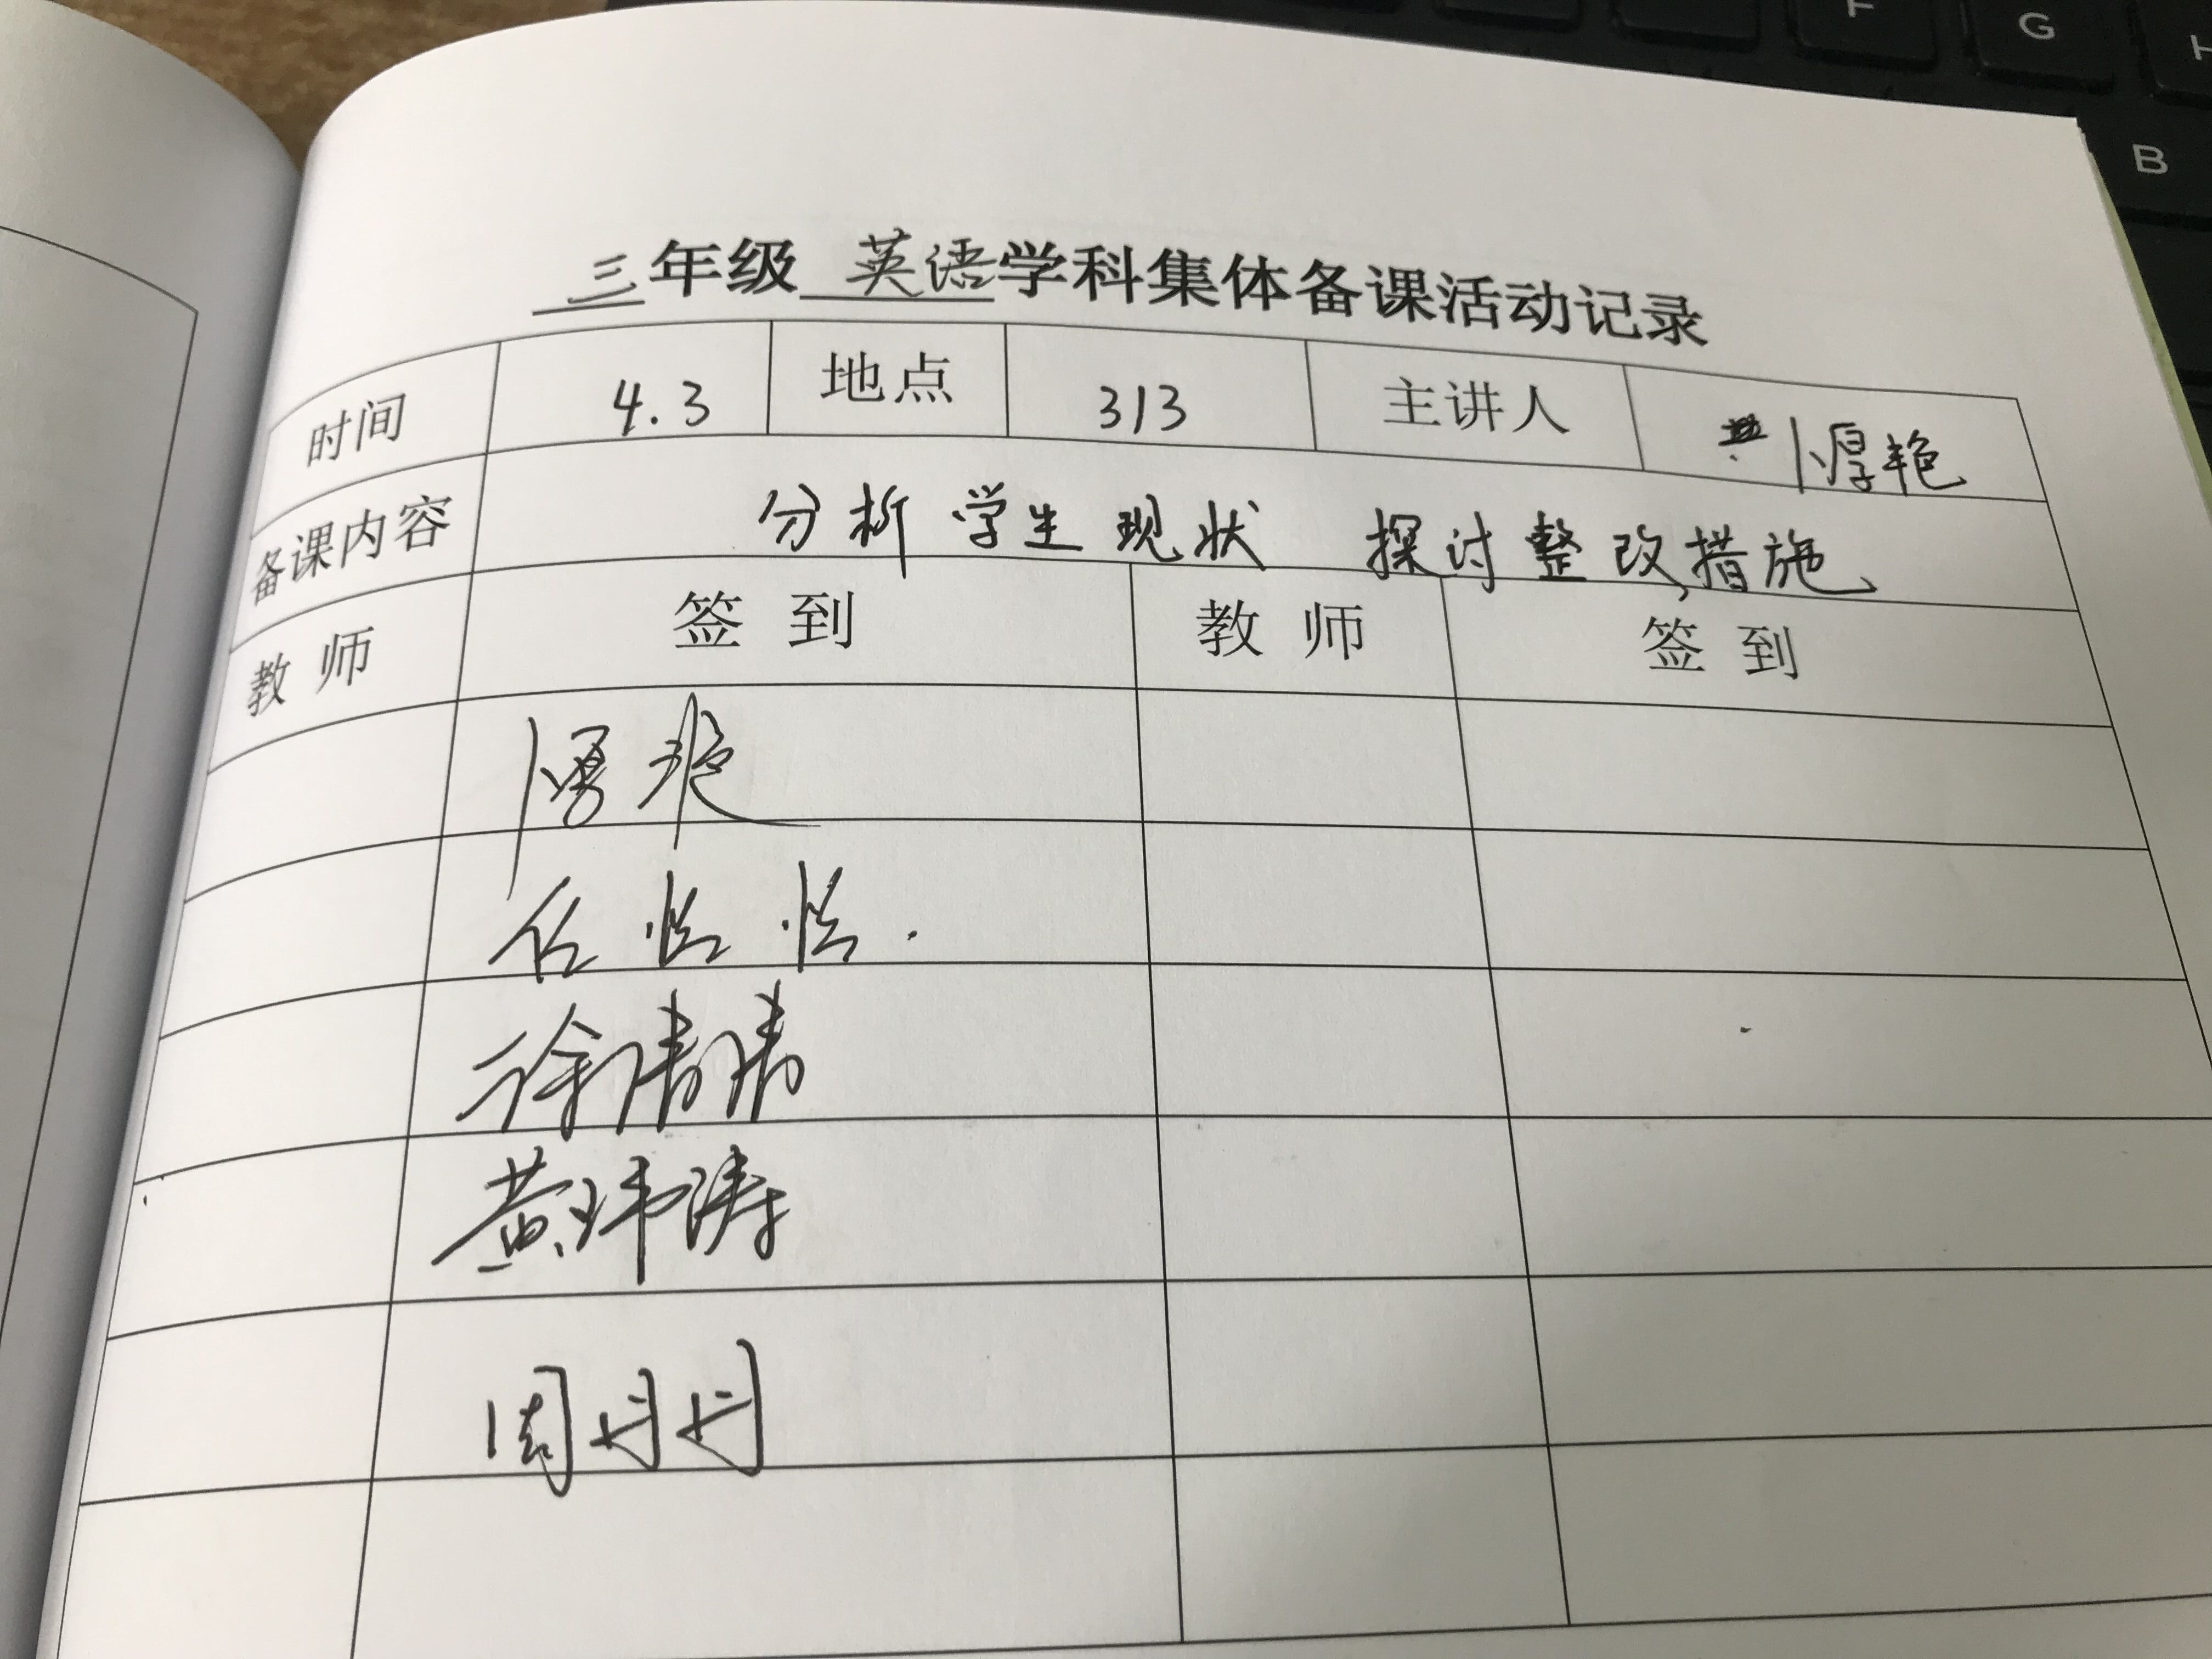 F G H
B
三年级 英语学科集体备课活动记录
时间 4.3 地点 313 主讲人 卜厚艳
备课内容 分析学生现状 探讨整改措施
教师 签到 教师 签到
卜厚艳
任
徐倩倩
黄玮涛
周丹丹